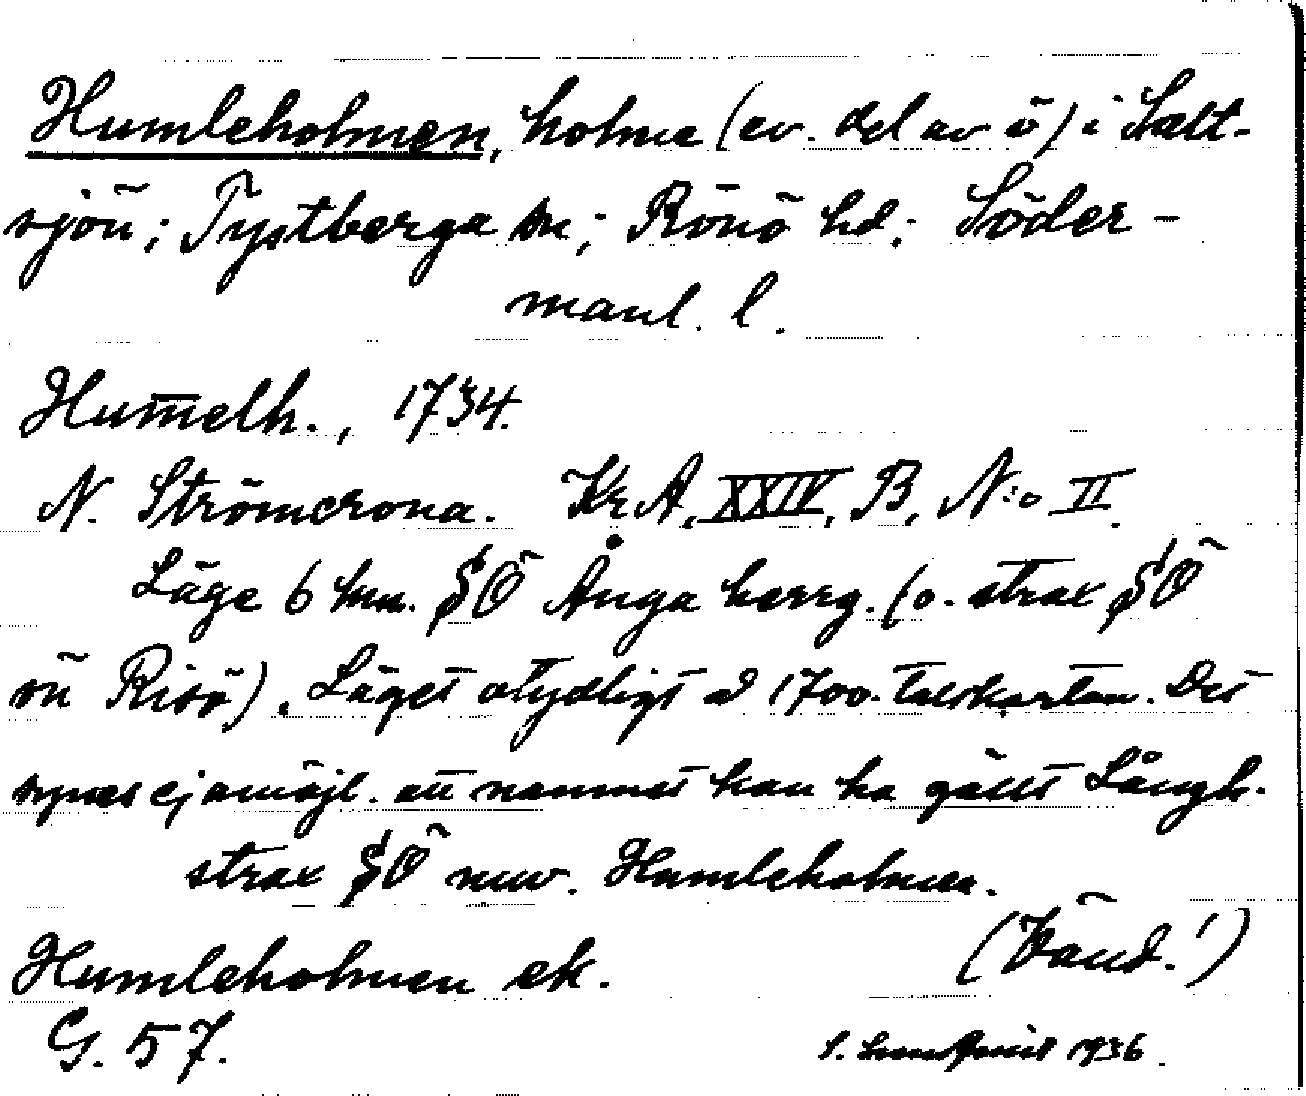 Humleholmen, holme (ev. del av ö) i Salt-
sjön; Tystberga sn; Rönö hd; Söder-
manl. l.
Hum̅elh., 1734.
N. Strömcrona. Kr A, XXIV, B, N:o II.
Läge 6 km. SÖ Ånga herrg. (o. strax SÖ
om Risö). Läget otydligt å 1700-talskartan. Det
synes ej omöjl. att namnet kan ha gällt Långh.
strax SÖ nuv. Humleholmen.
(Vänd!)
Humleholmen ek.
G. 57.
1936.